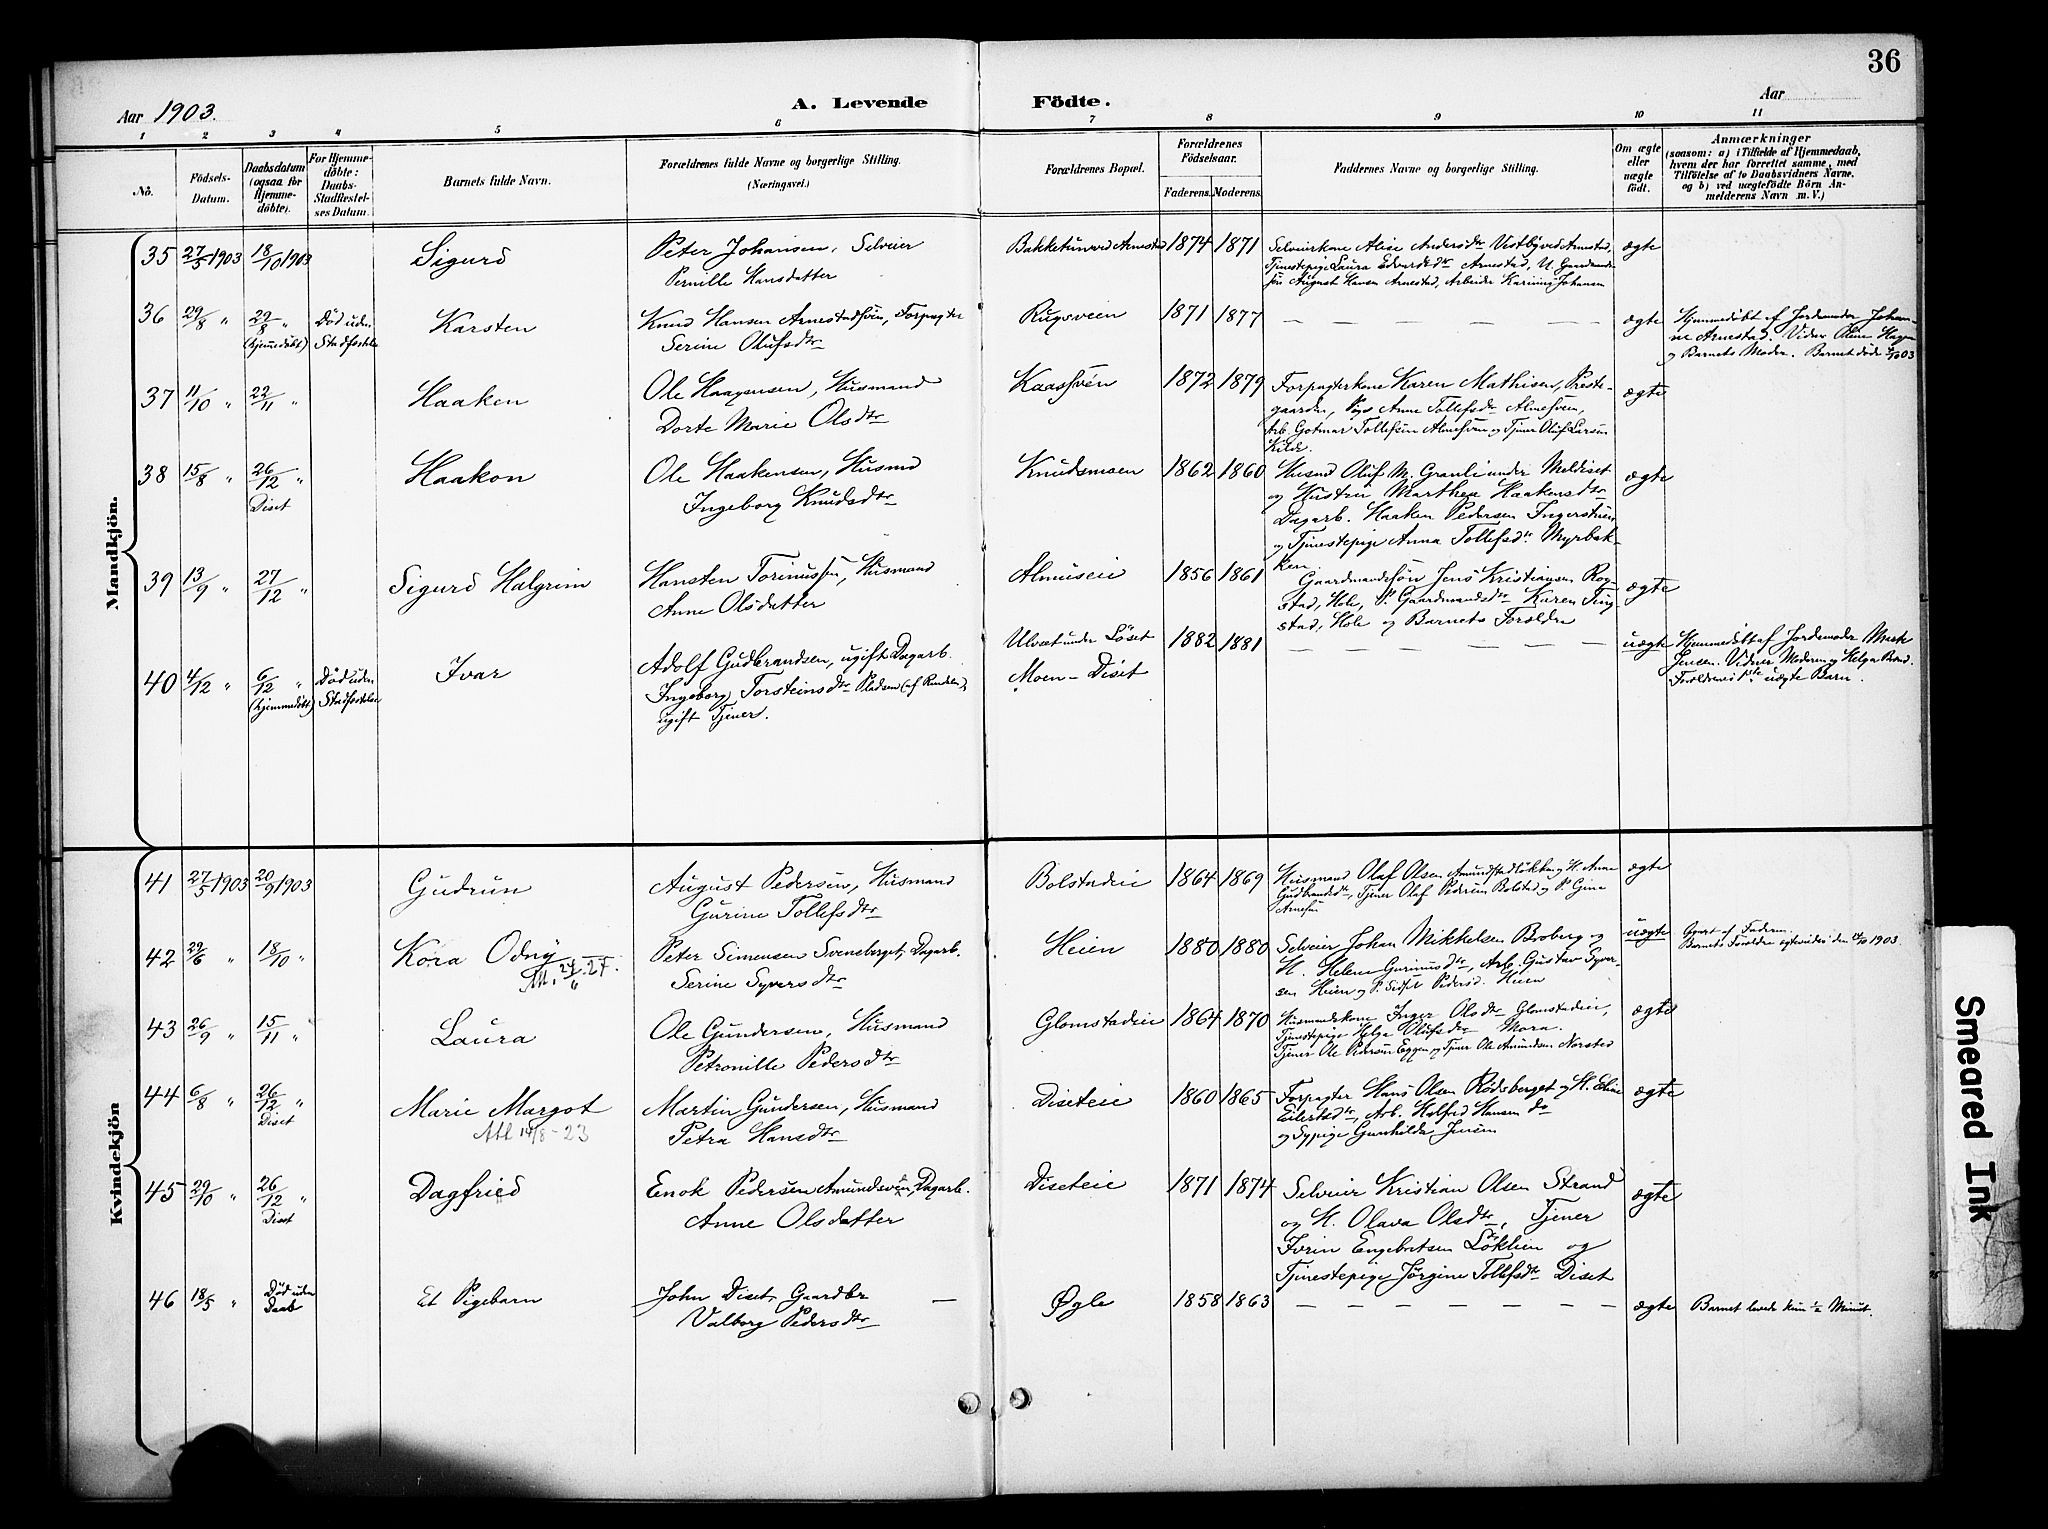 36
Aar 1903.
A. Levende Födte.
Aar
1 2 3 4 5 6 7 8 9 10 11
No.
Födsels-
Datum.
Daabsdatum
(ogsaa for
Hjemme-
döbte).
For Hjemme-
döbte:
Daabs-
Stadfæstel-
ses Datum.
Barnets fulde Navn.
Forældrenes fulde Navne og borgerlige Stilling.
(Næringsvei.)
Forældrenes Bopæl.
Forældrenes
Födselsaar.
Faderens. Moderens.
Faddernes Navne og borgerlige Stilling.
Om ægte
eller
uægte
födt.
Anmærkninger
(saasom: a) i Tilfælde af Hjemmedaab,
hvem der har forrettet samme, med
Tilföielse af to Daabsvidners Navne,
og b) ved uægtefödte Börn An-
melderens Navn m. V.)
Mandkjön.
35 27/5 1903 18/10 1903 Sigurd
Peter Johansen, Selveier
Pernille Hansdatter
Bakketun ved Arnestad 1874 1871
Selveierkone Alise Andersdtr Vestby ved Arnestad,
Tjenestepige Laura Edvardsdtr Arnestad, U. Gaardmands-
søn August Hansen Arnestad, Arbeider Johansen
ægte
36 29/8 " 29/8 "
(hjemmedöbt)
Död uden
Stadfæstelse
Karsten
Knud Hansen Arnestadsven, Forpagter
Serine Olufsdtr
Rugsveen 1871 1877
— — — — — — —
ægte
Hjemmedöbt af Jordemoder Johan-
ne Arnestad. Vidner Oline Hagen
og Barnets Moder. Barnet döde 03
37 11/10 " 22/11 " Haaken
Ole Haagensen, Husmand
Dorte Marie Olsdtr
Kaassveen 1872 1879
Forpagterkone Karen Mathisen, Præste-
gaarden, Pige Anne Tollefsdtr Almesveen,
Arb. Gotmar Tollefsen Almesveen og Tjener Oluf Larsen
Kilde.
ægte
38 15/8 " 26/12 "
Diset
Haakon
Ole Haakensen, Husmd
Ingeborg Knudsdtr
Knudsmoen 1862 1860
Husmd Oluf M. Granli under Meldiset
og Hustru Marthea Haakensdtr
Dagarb. Haaken Pedersen Ingerstuen
og Tjenestepige Anna Tollefsdtr Myrbak-
ken.
ægte
39 13/9 " 27/12 " Sigurd Halgrim
Hansten Torinussen, Husmand
Anne Olsdatter
Almuseie 1856 1861
Gaardmandssøn Jens Kristiansen Rog-
stad, Hole, P. Gaardmandsdtr Karen Ting-
stad, Hole og Barnets Forældre
ægte
40 4/12 " 6/12 "
(hjemmedöbt)
Död uden
Stadfæstelse
Ivar
Adolf Gudbrandsen, ugift Dagarb.
Ingeborg Torsteinsdtr Pladsen (af Rendalen),
ugift Tjener.
Ulvset under Löset
Moen - Diset
1882 1881
— — — — — — —
uægte
Hjemmedöbt af Jordemoder
Jensen. Vidner Moderen og Helga
Forældrenes 1ste uægte Barn.
Kvindekjön
41 27/5 1903 20/9 1903 Gudrun
August Pedersen, Husmand
Gurine Tollefsdtr
Bolstadeie 1864 1869
Husmand Olaf Olsen Amundstadlökken og H. Anne
Gudbrandsdtr, Tjener Olaf Pedersen Bolstad og P. Gina
Arnesen
ægte
42 29/6 " 18/10 " Kora Odny
Att. 24/6 27.
Peter Simensen Svensberget, Dagarb.
Serine Syversdtr
Heien 1880 1880
Selveier Johan Mikkelsen Broberg og
H. Helene Gurinusdtr, Arb. Gustav Syver-
sen Heien og P. Pedersd. Heien
uægte
Gjort af Faderen.
Barnets Forældre egteviedes den 18/10 1903.
43 26/9 " 15/11 " Laura
Ole Gundersen, Husmand
Petronille Pedersdtr
Glomstadeie 1864 1870
Husmandskone Inger Olsdtr Glomstadeie,
Tjenestepige Helga Olufsdtr Mora.
Tjener Ole Pedersen Eggen og Tjener Ole Amundsen Norsted
ægte
44 6/8 " 26/12 "
Diset
Marie Margot
Att 14/8-23
Martin Gundersen, Husmand
Petra Hansdtr
Diseteie 1860 1865
Forpagter Hans Olsen Rödsberget og H. Eline
Eilertsdtr, Arb. Halfred Hansen do
og Sypige Gunhilda Jensen
ægte
45 29/10 " 26/12 "
Diset
Dagfried
Enok Pedersen Amundsveen, Dagarb.
Anne Olsdatter
Diseteie 1871 1874
Selveier Kristian Olsen Strand
og H. Olava Olsdtr, Tjener
Iverin Engebretsen Lökken og
Tjenestepige Jörgine Tollefsdtr Diset
ægte
46 18/5 " Död uden
Daab
Et Pigebarn
John Diset, Gaardbr —
Valborg Pedersdtr
Øgle 1858 1863
— — — — — — —
ægte
Barnet levede kun 1/2 Minut.
Smeared Ink